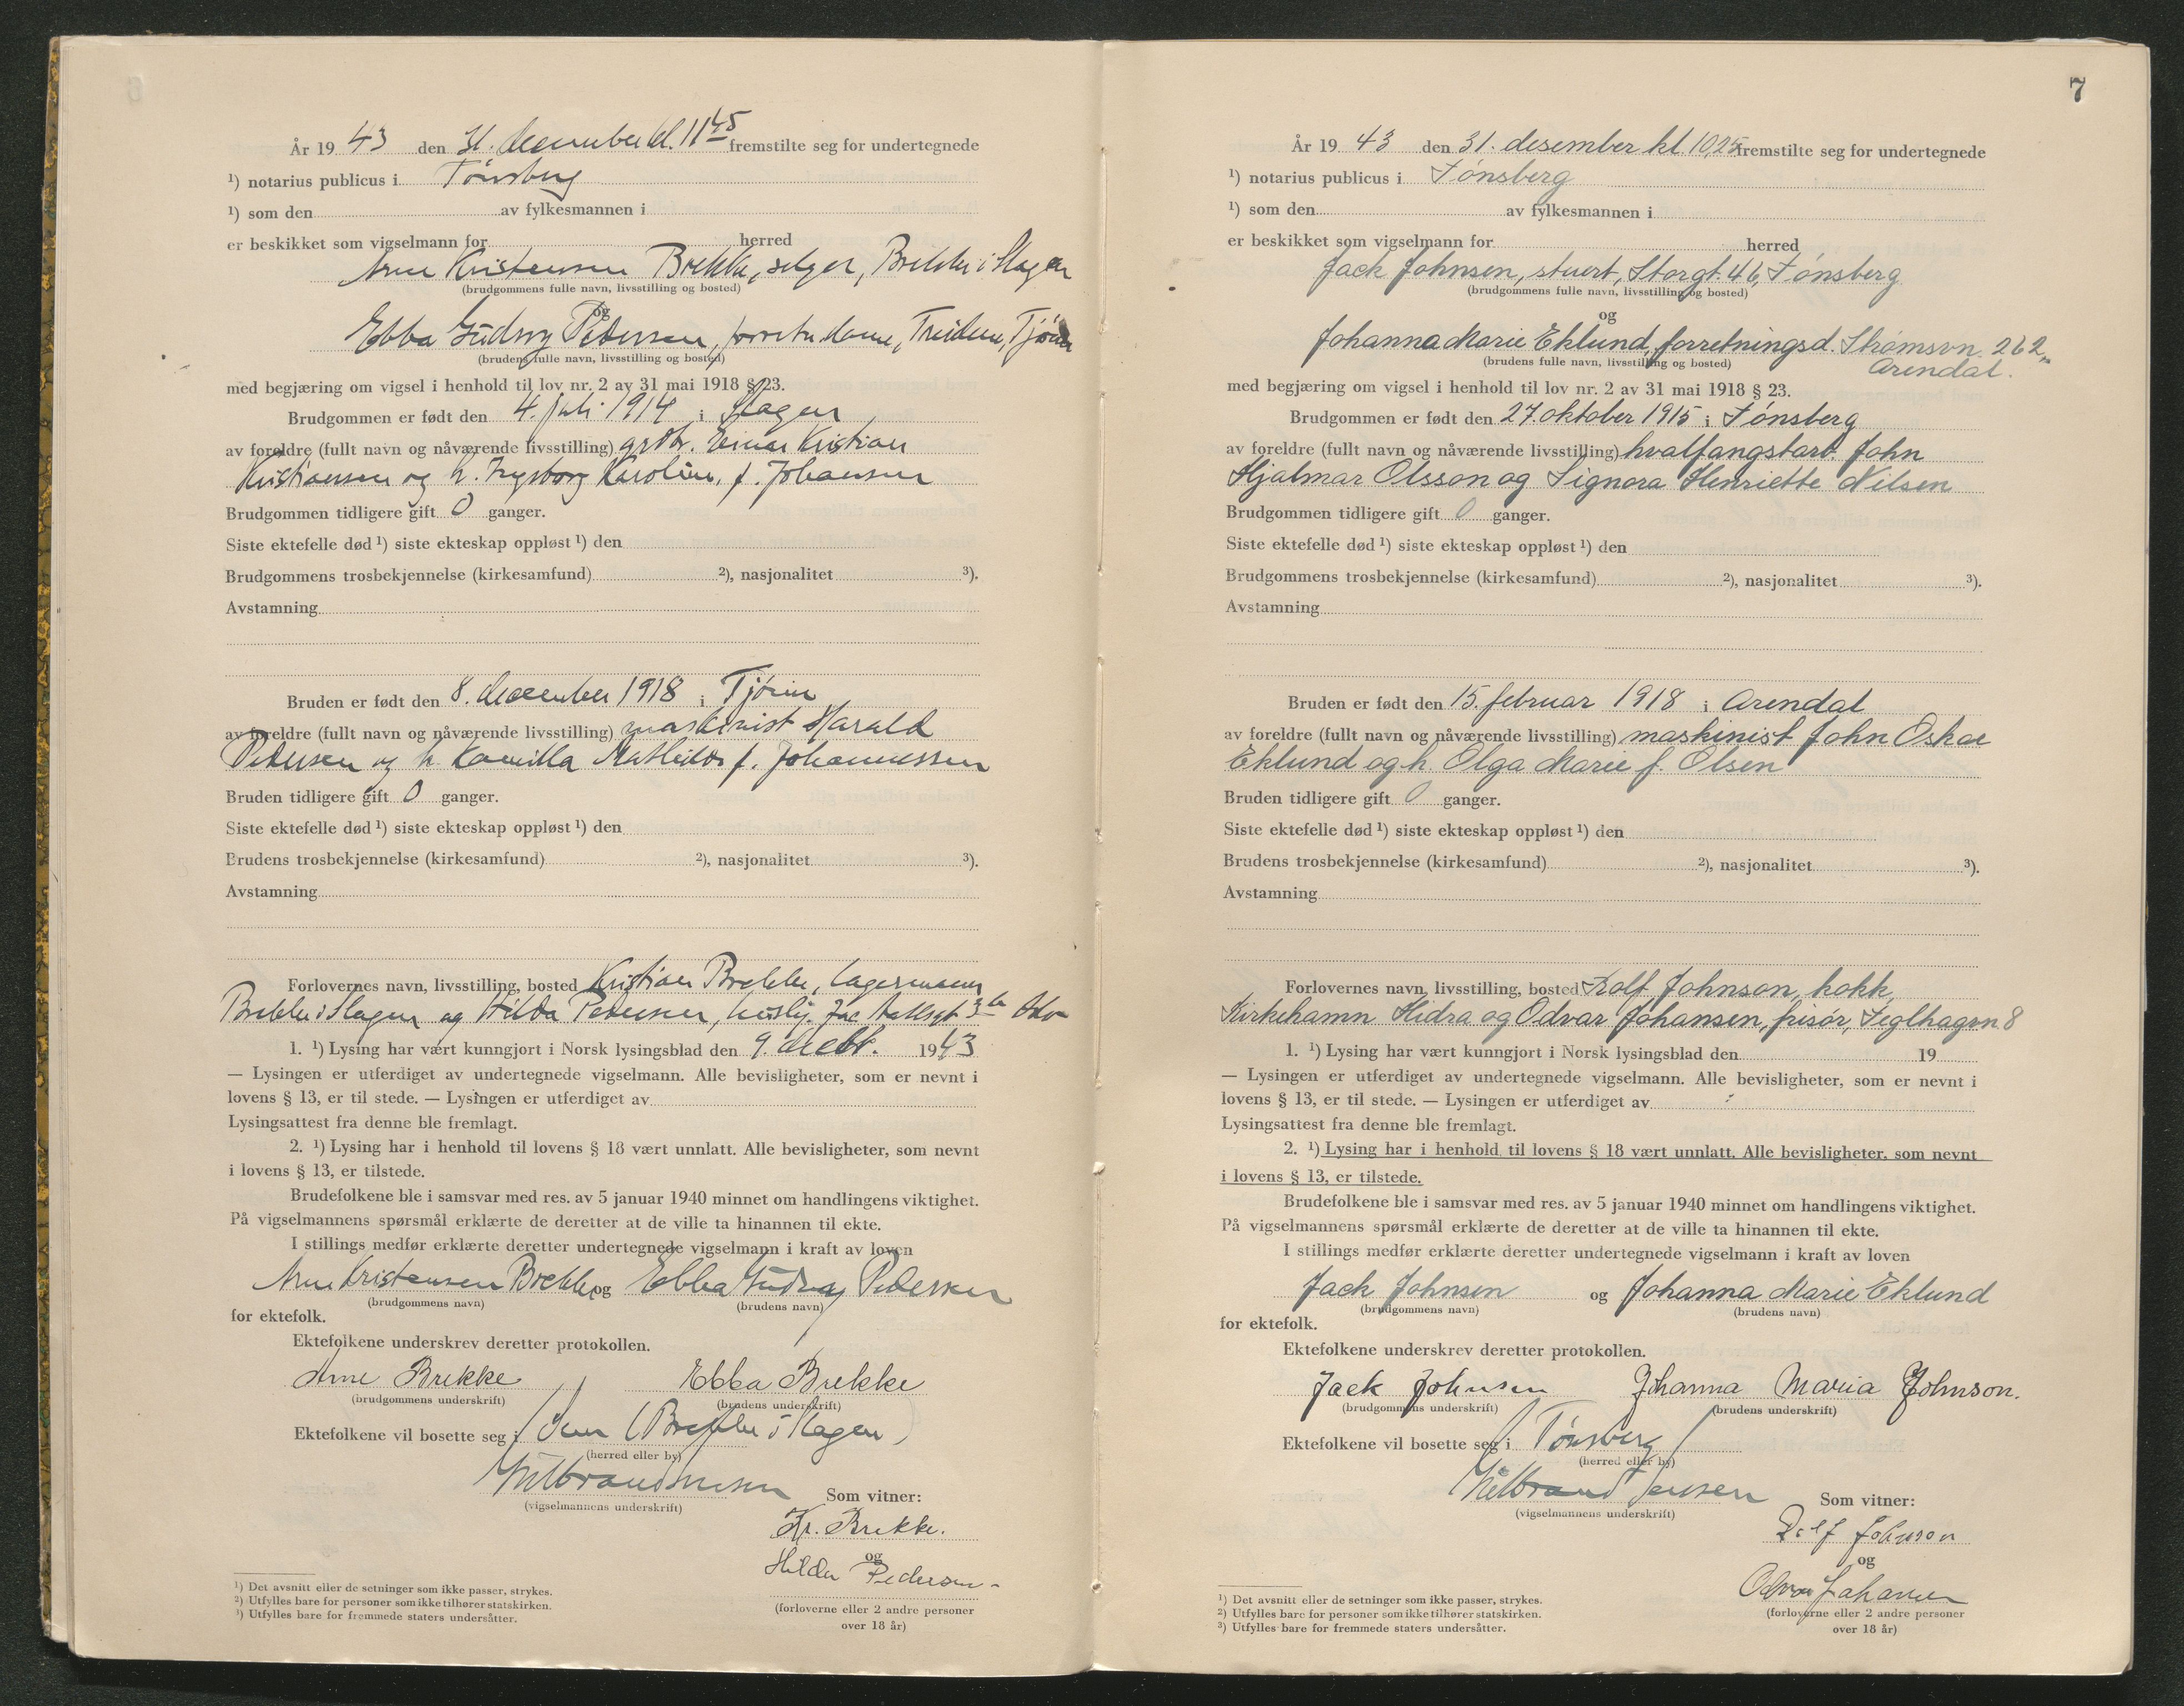 År 1943 den 31. december kl. 11⁴⁵ fremstilte seg for undertegnede
¹) notarius publicus i Tønsberg
¹) som den av fylkesmannen i
er beskikket som vigselmann for herred
Arne Kristensen Brekke, selger, Brekke i Slagen
(brudgommens fulle navn, livsstilling og bosted)
og
Ebba Gudrøy Pedersen, forretn.dame, Treidene, Tjøme
(brudens fulle navn, livsstilling og bosted)
med begjæring om vigsel i henhold til lov nr. 2 av 31 mai 1918 § 23.
Brudgommen er født den 4. juli 1914 i Slagen
av foreldre (fullt navn og nåværende livsstilling) grdbr. Einar Kristian
Kristiansen og h. Ingeborg Karoline, f. Johansen
Brudgommen tidligere gift 0 ganger.
Siste ektefelle død ¹) siste ekteskap oppløst ¹) den
Brudgommens trosbekjennelse (kirkesamfund) ²), nasjonalitet ³).
Avstamning
Bruden er født den 8. december 1918 i Tjøme
av foreldre (fullt navn og nåværende livsstilling) maskinist Harald
Pedersen og h. Kamilla Mathilde f. Johannessen
Bruden tidligere gift 0 ganger.
Siste ektefelle død ¹) siste ekteskap oppløst ¹) den
Brudens trosbekjennelse (kirkesamfund) ²), nasjonalitet ³).
Avstamning
Forlovernes navn, livsstilling, bosted Kristian Brekke, lagermann
Brekke i Slagen og Hilda Pedersen, Jac. Aallsgt 3 Oslo
1. ¹) Lysing har vært kunngjort i Norsk lysingsblad den 9. decbr. 1943
— Lysingen er utferdiget av undertegnede vigselmann. Alle bevisligheter, som er nevnt i
lovens § 13, er til stede. — Lysingen er utferdiget av
Lysingsattest fra denne ble fremlagt.
2. ¹) Lysing har i henhold til lovens § 18 vært unnlatt. Alle bevisligheter, som nevnt
i lovens § 13, er tilstede.
Brudefolkene ble i samsvar med res. av 5 januar 1940 minnet om handlingens viktighet.
På vigselmannens spørsmål erklærte de deretter at de ville ta hinannen til ekte.
I stillings medfør erklærte deretter undertegnede vigselmann i kraft av loven
Arne Kristensen Brekke og Ebba Gudrøy Pedersen
(brudgommens navn) (brudens navn)
for ektefolk.
Ektefolkene underskrev deretter protokollen.
Arne Brekke Ebba Brekke
(brudgommens underskrift) (brudens underskrift)
Ektefolkene vil bosette seg i Sem (Brekke i Slagen)
(herred eller by)
Hilbrand Jensen
(vigselmannens underskrift)
Som vitner:
Kr. Brekke.
og
Hilda Pedersen
(forloverne eller 2 andre personer
over 18 år)
¹) Det avsnitt eller de setninger som ikke passer, strykes.
²) Utfylles bare for personer som ikke tilhører statskirken.
³) Utfylles bare for fremmede staters undersåtter.
7
År 1943 den 31. desember kl 10,25 fremstilte seg for undertegnede
¹) notarius publicus i Tønsberg
¹) som den av fylkesmannen i
er beskikket som vigselmann for herred
Jack Johnsen, stuert, Storgt. 46, Tønsberg
(brudgommens fulle navn, livsstilling og bosted)
og
Johanna Marie Eklund, forretningsd. Strømsvn. 262,
(brudens fulle navn, livsstilling og bosted) Arendal.
med begjæring om vigsel i henhold til lov nr. 2 av 31 mai 1918 § 23.
Brudgommen er født den 27. oktober 1915 i Tønsberg
av foreldre (fullt navn og nåværende livsstilling) hvalfangstarb. John
Hjalmar Olsson og Signora Henriette Nilsen
Brudgommen tidligere gift 0 ganger.
Siste ektefelle død ¹) siste ekteskap oppløst ¹) den
Brudgommens trosbekjennelse (kirkesamfund) ²), nasjonalitet ³).
Avstamning
Bruden er født den 15. februar 1918 i Arendal
av foreldre (fullt navn og nåværende livsstilling) maskinist John Oskar
Eklund og h. Olga Marie f. Olsen
Bruden tidligere gift 0 ganger.
Siste ektefelle død ¹) siste ekteskap oppløst ¹) den
Brudens trosbekjennelse (kirkesamfund) ²), nasjonalitet ³).
Avstamning
Forlovernes navn, livsstilling, bosted Rolf Johnson, kokk,
Kirkehamn Hidra og Odvar Johansen, frisør, Teglhagen 8
1. ¹) Lysing har vært kunngjort i Norsk lysingsblad den 19
— Lysingen er utferdiget av undertegnede vigselmann. Alle bevisligheter, som er nevnt i
lovens § 13, er til stede. — Lysingen er utferdiget av
Lysingsattest fra denne ble fremlagt.
2. ¹) Lysing har i henhold til lovens § 18 vært unnlatt. Alle bevisligheter, som nevnt
i lovens § 13, er tilstede.
Brudefolkene ble i samsvar med res. av 5 januar 1940 minnet om handlingens viktighet.
På vigselmannens spørsmål erklærte de deretter at de ville ta hinannen til ekte.
I stillings medfør erklærte deretter undertegnede vigselmann i kraft av loven
Jack Johnsen og Johanna Marie Eklund
(brudgommens navn) (brudens navn)
for ektefolk.
Ektefolkene underskrev deretter protokollen.
Jack Johnsen Johanna Maria Johnson.
(brudgommens underskrift) (brudens underskrift)
Ektefolkene vil bosette seg i Tønsberg
(herred eller by)
Hilbrand Jensen
(vigselmannens underskrift)
Som vitner:
Rolf Johnson
og
Odvar Johansen
(forloverne eller 2 andre personer
over 18 år)
¹) Det avsnitt eller de setninger som ikke passer, strykes.
²) Utfylles bare for personer som ikke tilhører statskirken.
³) Utfylles bare for fremmede staters undersåtter.